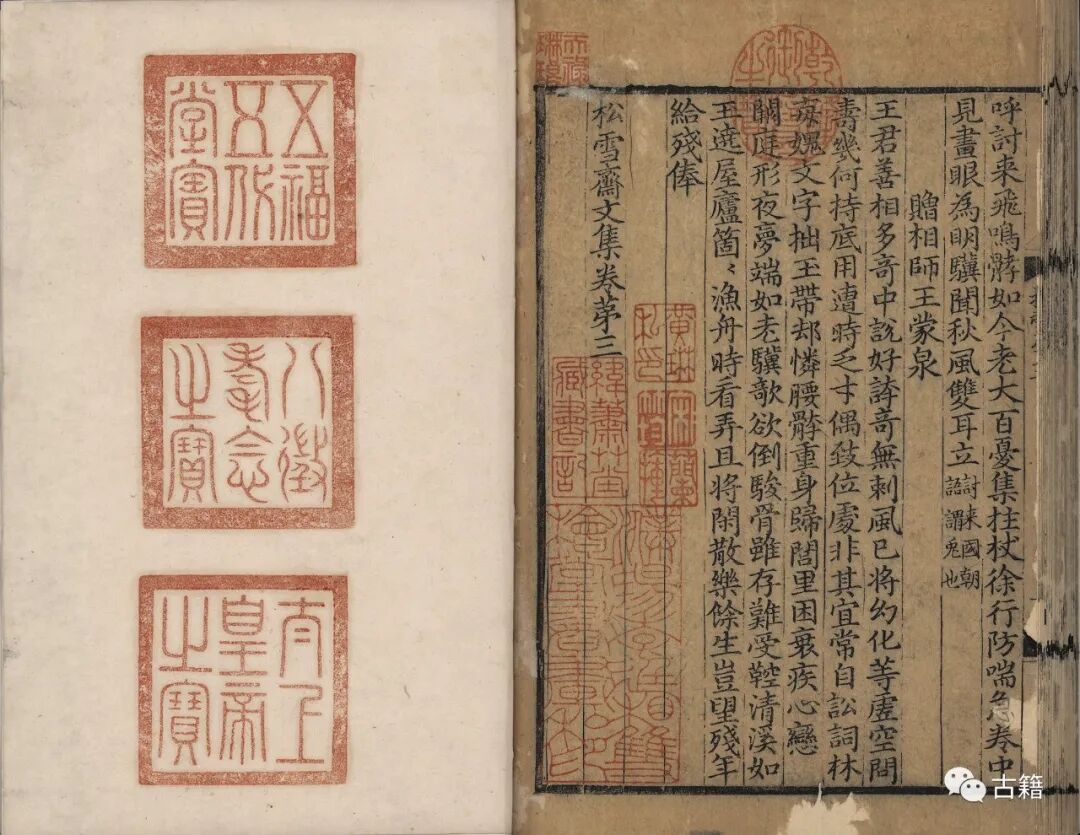 乾隆御覽之寶
天祿琳琅
呼討来飛鳴髇如今老大百憂集拄杖徐行防喘急卷中
見畫眼為明驥聞秋風雙耳立
討来國朝
語謂兎也
贈相師王蒙泉
王君善相多奇中說好誇奇無刺風已將幻化等虛空問
壽幾何持底用遭時乏才偶致位處非其宜常自訟詞林
毎媿文字拙玉帶却憐腰髀重身歸閭里困衰疾心戀
闕庭形夜夢端如老驥欹欲倒駿骨雖存難受鞚清溪如
玉遶屋廬箇〻漁舟時看弄且將閑散樂餘生豈望殘年
給殘俸
松雪齋文集卷苐三
緯蕭草堂
藏書記
五福
五代
堂寶
八徵
耄念
之寶
太上
皇帝
之寶
古籍